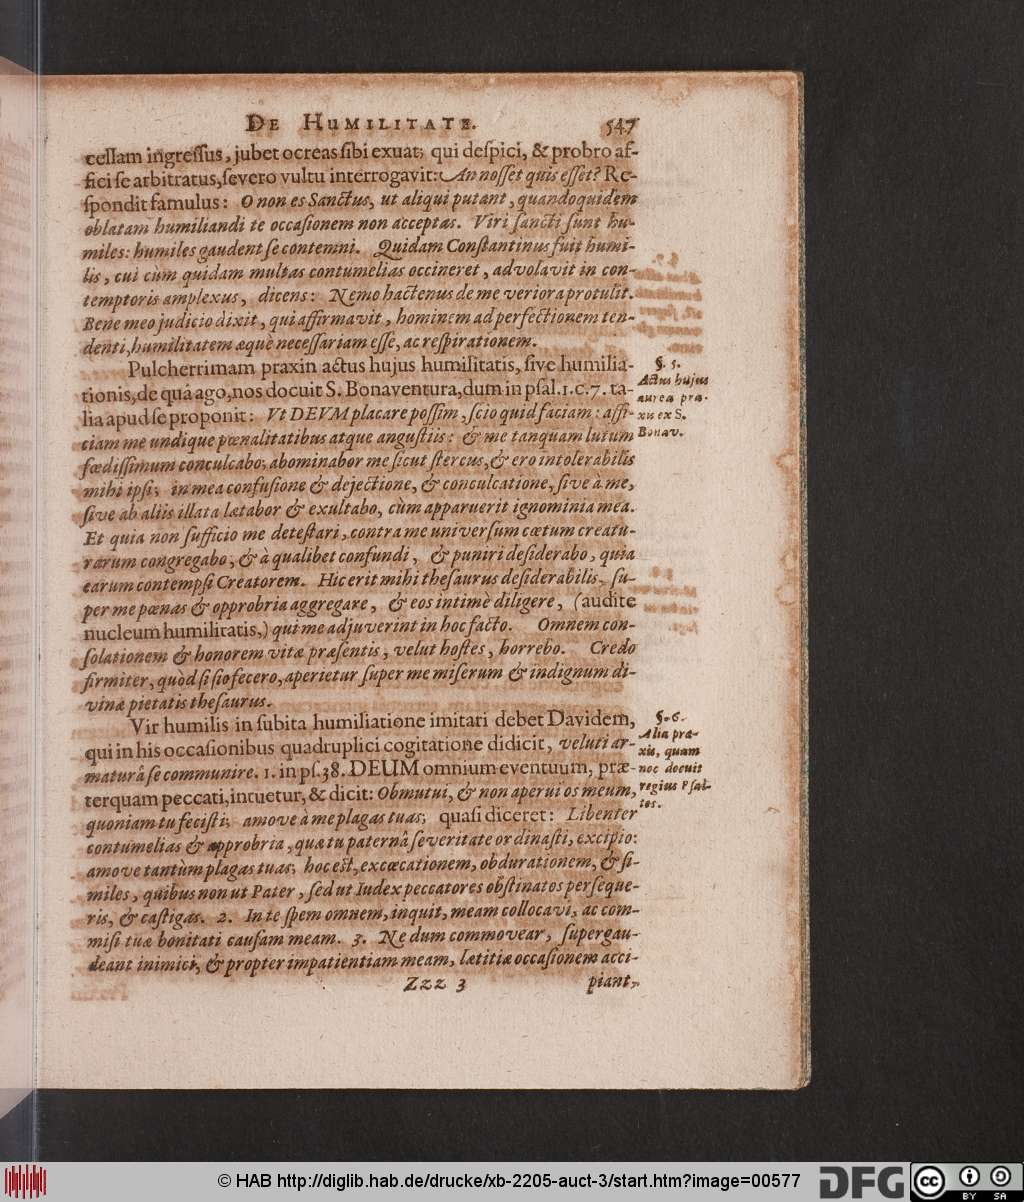 DE HUMILITATE. 547
cellam ingreſſus, jubet ocreas ſibi exuat; qui deſpici, & probro af-
fici ſe arbitratus, ſevero vultu interrogavit: An noſſet quis eſſet? Re-
ſpondit famulus: O non es Sanctus, ut aliqui putant, quandoquidem
oblatam humiliandi te occaſionem non acceptas. Viri ſancti ſunt hu-
miles: humiles gaudent ſe contemni. Quidam Conſtantinus fuit humi-
lis, cui cùm quidam multas contumelias occineret, advolavit in con-
temptoris amplexus, dicens: Nemo hactenus de me veriora protulit.
Bene meo judicio dixit, qui affirmavit, hominem ad perfectionem ten-
denti, humilitatem æquè neceſſariam eſſe, ac reſpirationem.
Pulcherrimam praxin actus hujus humilitatis, ſive humilia-
tionis, de quâ ago, nos docuit S. Bonaventura, dum in pſal. 1. c. 7. ta-
lia apud ſe proponit: Vt DEVM placare poſſim, ſcio quid faciam: affi-
ciam me undique pœnalitatibus atque anguſtiis: & me tanquam lutum
fœdiſſimum conculcabo; abominabor me ſicut ſtercus, & ero intolerabilis
mihi ipſi; in mea confuſione & dejectione, & conculcatione, ſive à me,
ſive ab aliis illata lætabor & exultabo, cùm apparuerit ignominia mea.
Et quia non ſufficio me deteſtari, contra me univerſum cœtum creatu-
rarum congregabo, & à qualibet confundi, & puniri deſiderabo, quia
earum contempſi Creatorem. Hic erit mihi theſaurus deſiderabilis, ſu-
per me pœnas & opprobria aggregare, & eos intimè diligere, (audite
nucleum humilitatis,) qui me adjuverint in hoc facto. Omnem con-
ſolationem & honorem vitæ præſentis, velut hoſtes, horrebo. Credo
firmiter, quòd ſi ſio fecero, aperietur ſuper me miſerum & indignum di-
vinæ pietatis theſaurus.
§. 5.
Actus hujus
aurea pra-
xis ex S.
Bonav.
Vir humilis in ſubita humiliatione imitari debet Davidem,
qui in his occaſionibus quadruplici cogitatione didicit, veluti ar-
maturâ ſe communire. 1. in pſ. 38. DEUM omnium eventuum, præ-
terquam peccati, intuetur, & dicit: Obmutui, & non aperui os meum,
quoniam tu feciſti; amove à me plagas tuas; quaſi diceret: Libenter
contumelias & opprobria, quæ tu paternâ ſeveritate ordinaſti, excipio:
amove tantùm plagas tuas; hoc eſt, excæcationem, obdurationem, & ſi-
miles, quibus non ut Pater, ſed ut Iudex peccatores obſtinatos perſeque-
ris, & caſtigas. 2. In te ſpem omnem, inquit, meam collocavi, ac com-
miſi tuæ bonitati cauſam meam. 3. Ne dum commovear, ſupergau-
deant inimici, & propter impatientiam meam, lætitiæ occaſionem acci-
§. 6.
Alia pra-
xis, quam
nos docuit
regius Pſal-
tes.
Zzz 3 piant,
© HAB http://diglib.hab.de/drucke/xb-2205-auct-3/start.htm?image=00577
DFG
cc
BY SA